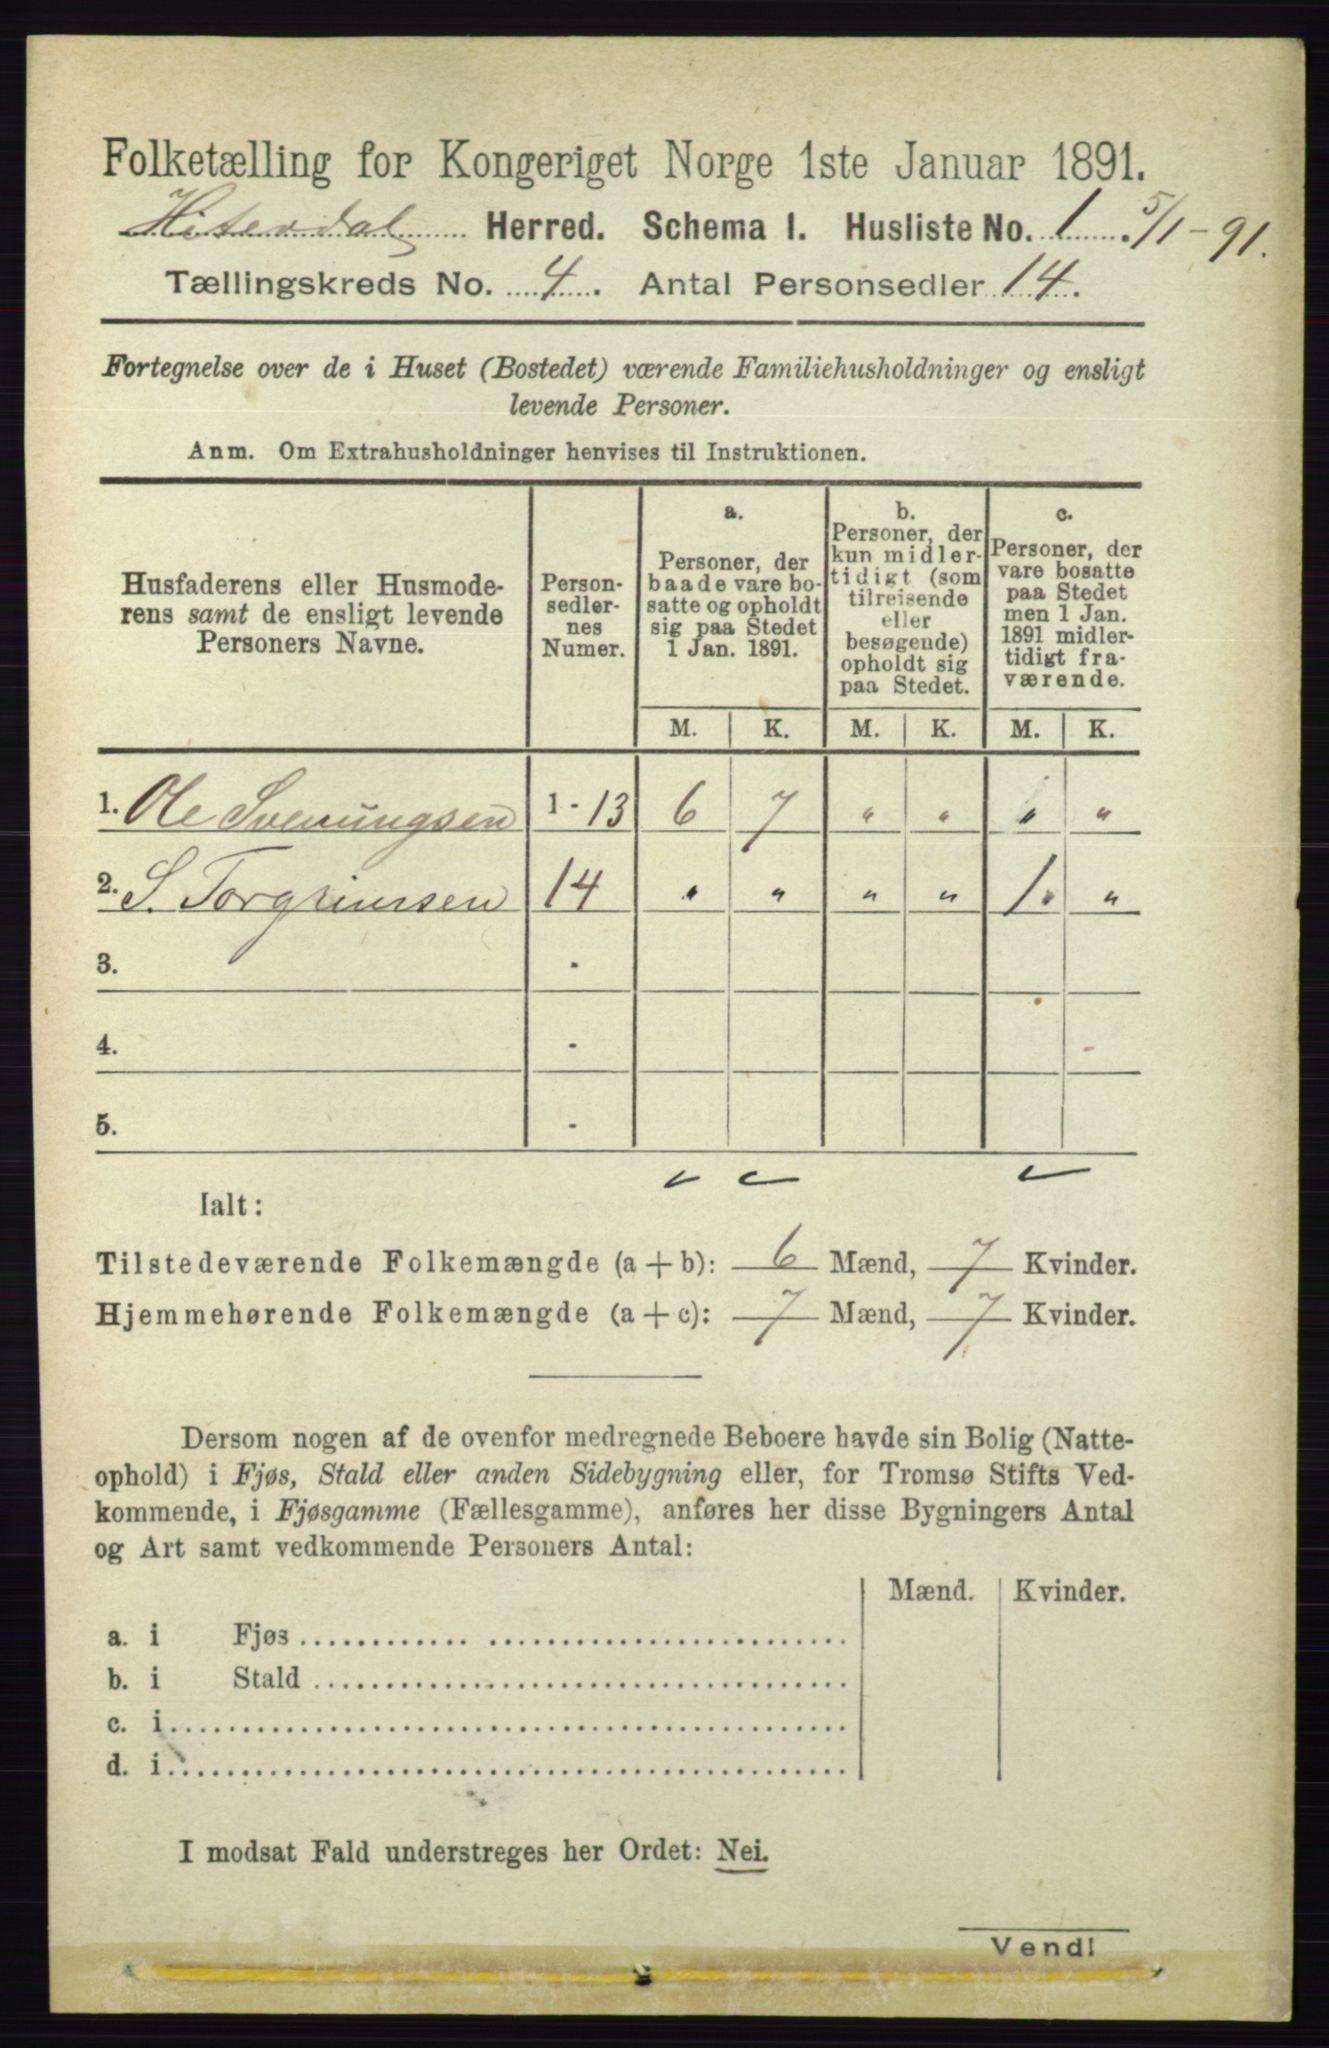 Folketælling for Kongeriget Norge 1ste Januar 1891.
Hiterdal Herred. Schema I. Husliste No. 1. 5/1-91.
Tællingskreds No. 4. Antal Personsedler 14.
Fortegnelse over de i Huset (Bostedet) værende Familiehusholdninger og ensligt
levende Personer.
Anm. Om Extrahusholdninger henvises til Instruktionen.
Husfaderens eller Husmode-
rens samt de ensligt levende
Personers Navne.
Person-
sedler-
nes
Numer.
a.
Personer, der
baade vare bo-
satte og opholdt
sig paa Stedet
1 Jan. 1891.
b.
Personer, der
kun midler-
tidigt (som
tilreisende
eller
besøgende)
opholdt sig
paa Stedet.
c.
Personer, der
vare bosatte
paa Stedet
men 1 Jan.
1891 midler-
tidigt fra-
værende.
M. K. M. K. M. K.
1. Ole Svenungsen 1 - 13 6 7 " " " "
2. S. Torgrimsen 14 " " " " 1. "
3. -
4. -
5. -
Ialt:
Tilstedeværende Folkemængde (a + b): 6 Mænd, 7 Kvinder.
Hjemmehørende Folkemængde (a + c): 7 Mænd, 7 Kvinder.
Dersom nogen af de ovenfor medregnede Beboere havde sin Bolig (Natte-
ophold) i Fjøs, Stald eller anden Sidebygning eller, for Tromsø Stifts Ved-
kommende, i Fjøsgamme (Fællesgamme), anføres her disse Bygningers Antal
og Art samt vedkommende Personers Antal:
Mænd. Kvinder.
a. i Fjøs
b. i Stald
c. i
d. i
I modsat Fald understreges her Ordet: Nei.
Vend!